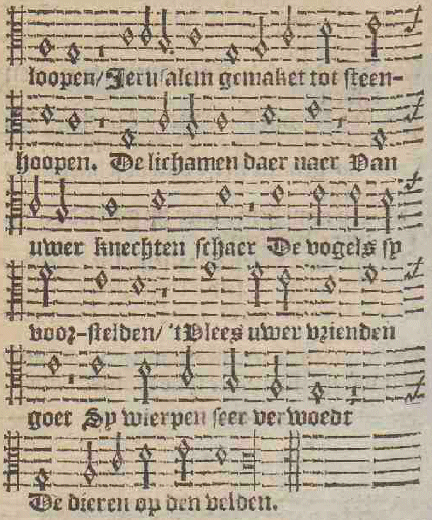 loopen/ Jerusalem gemaket tot steen-
hoopen. De lichamen daer naer Van
uwer knechten schaer De vogels sy
voor-stelden/ 'tVlees uwer vrienden
goet Sy wierpen seer verwoedt
De dieren op den velden.